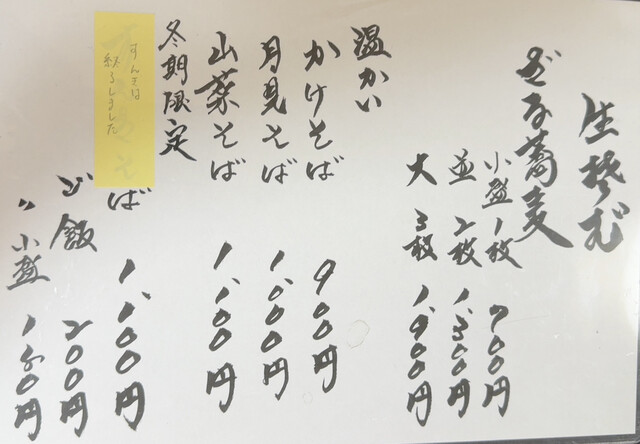 生そば
ざる蕎麦
小盛 1枚 700円
並 2枚 1,300円
大 3枚 1,900円
温かい
かけそば 900円
月見そば 1,000円
山菜そば 1,100円
冬期限定
すんきは
終了しました
そば 1,100円
ご飯 200円
〃 小盛 150円